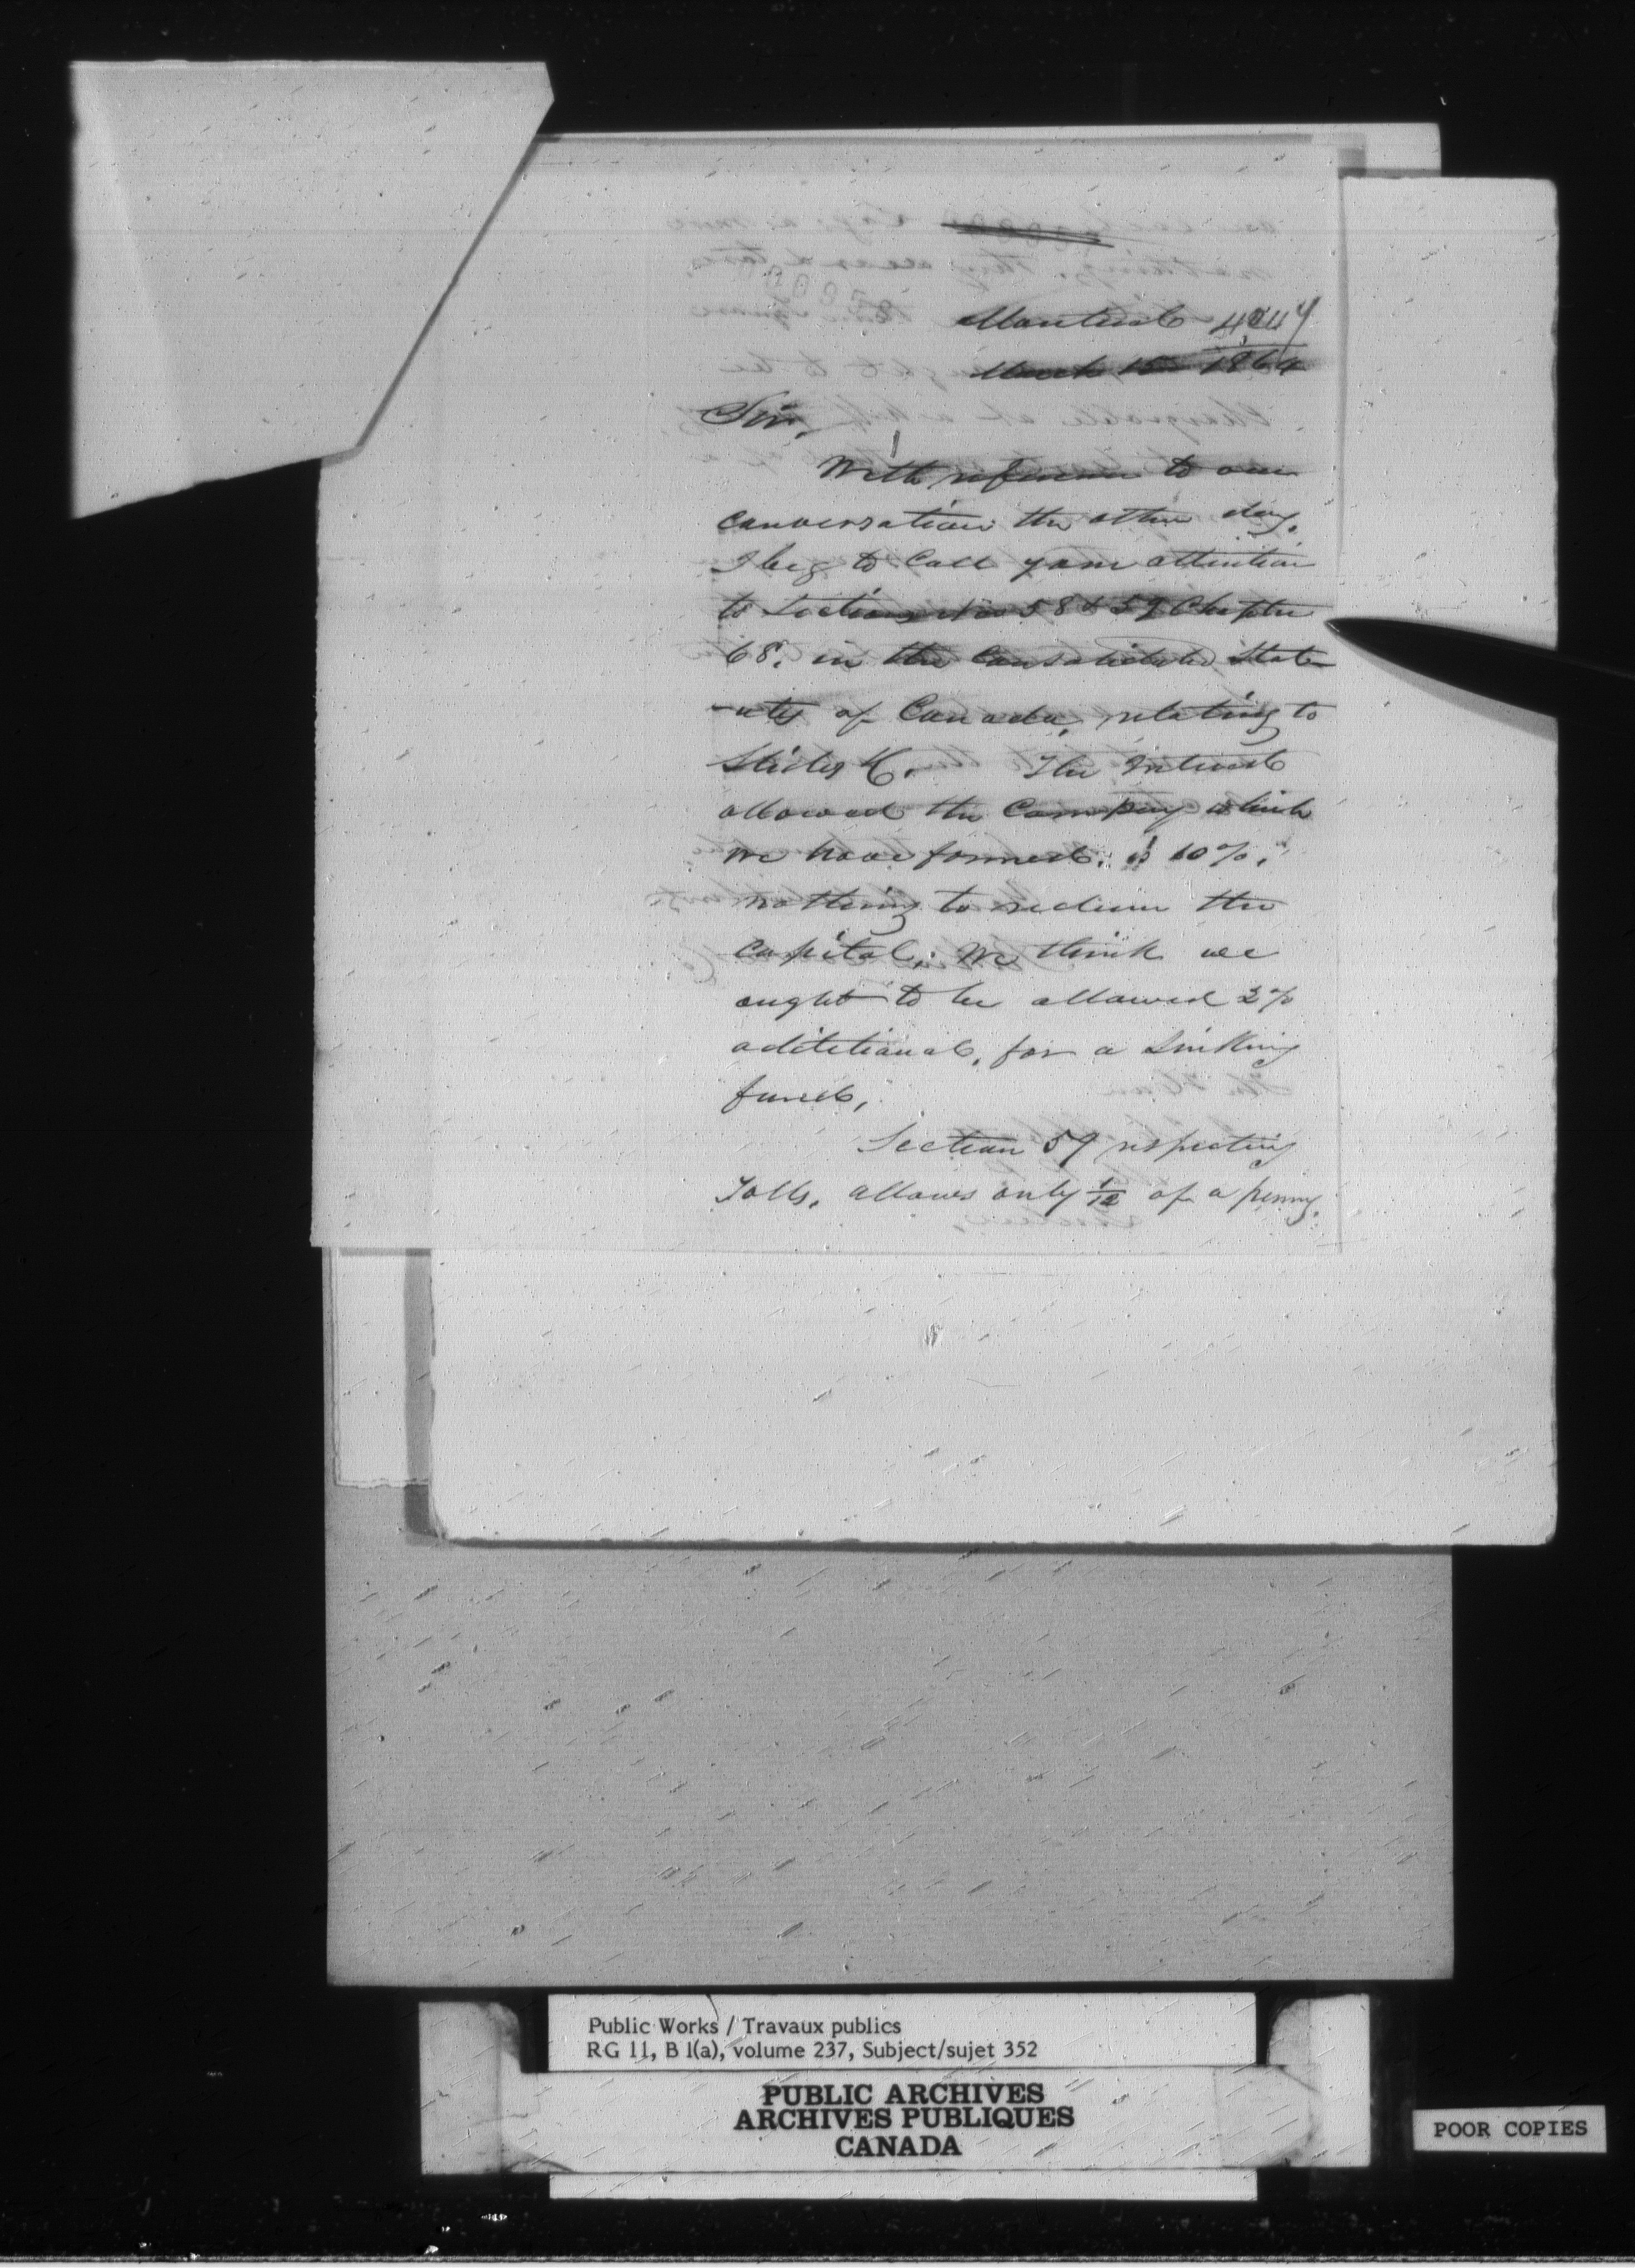 Montreal 4047
March 15 1864
Sir,
With reference to our
conversation the other day,
I beg to Call your attention
to Sections Nos 58 & 59 Chapter
68. in the Consolidated Stat-
-utes of Canada, relating to
Slides &c. The Interest
allowed the Company which
we have formed, is 10%,
nothing to redeem the
Capital, We think we
ought to be allowed 2%
additional, for a Sinking
fund,
Section 59 respecting
Tolls, allows only 1/12 of a penny.
Public Works / Travaux publics
RG 11, B 1(a), volume 237, Subject/sujet 352
PUBLIC ARCHIVES
ARCHIVES PUBLIQUES
CANADA
POOR COPIES